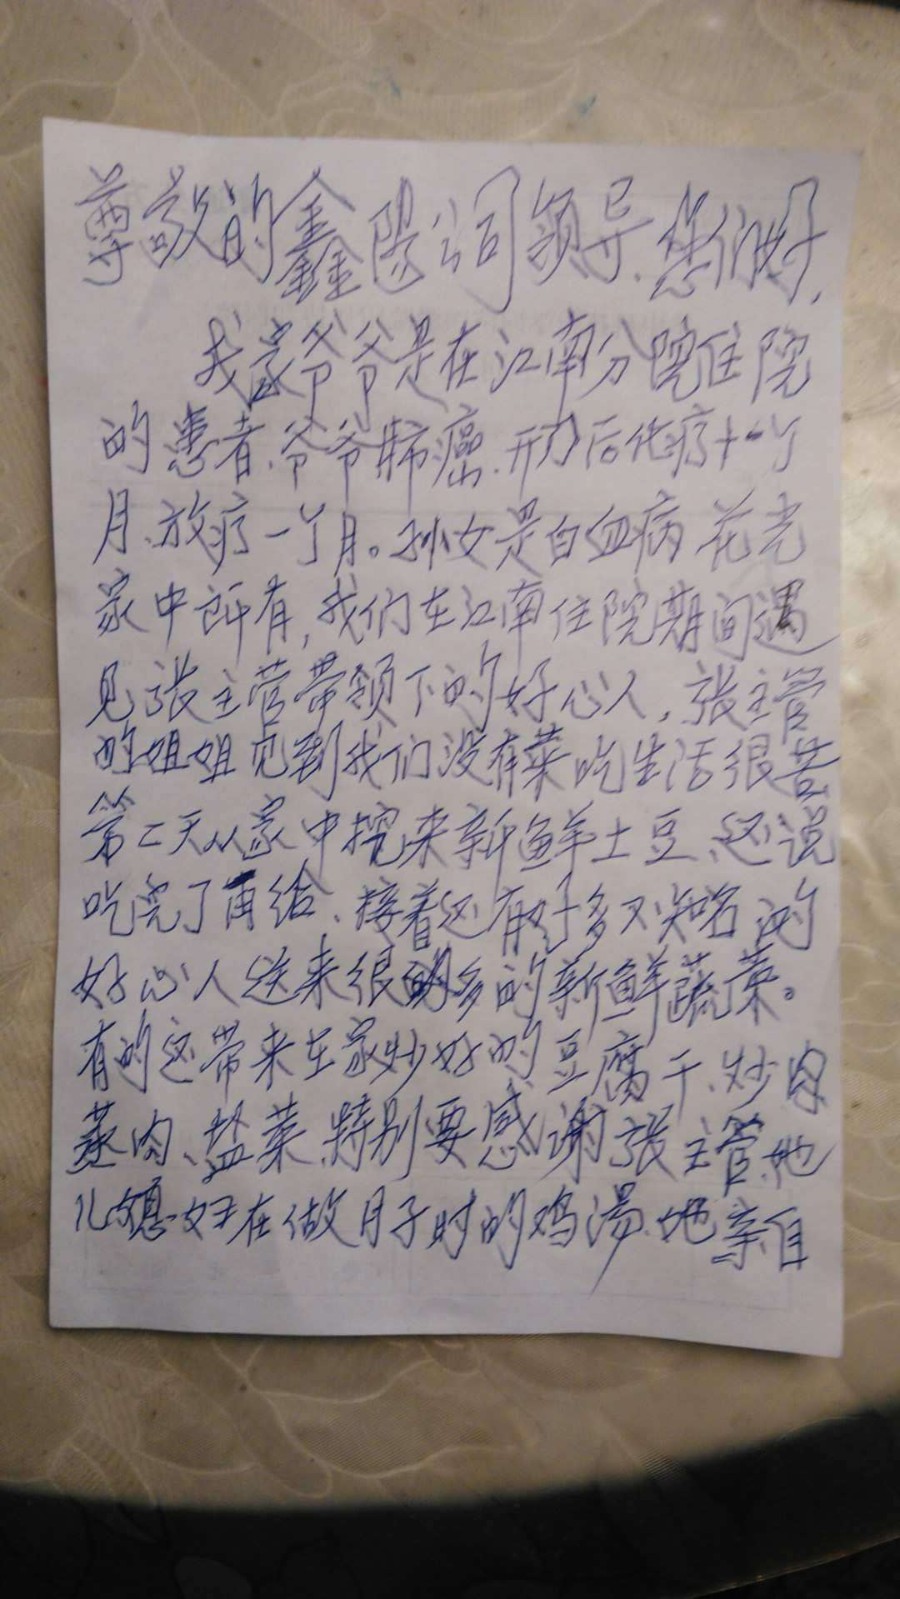 尊敬的鑫阳公司领导、您们好，
我家爷爷是在江南分院住院
的患者、爷爷肺癌、开刀后化疗十一个
月、放疗一个月。孙女是白血病 花光
家中所有，我们在江南住院期间遇
见张主管带领下的好心人，张主管
的姐姐见到我们没有菜吃生活很苦
第二天从家中挖来新鲜土豆、还说
吃完了再给、接着还有好多不知名的
好心人送来很多的新鲜蔬菜。
有的还带来在家炒好的豆腐干、炒肉
蒸肉、盐菜、特别要感谢张主管、她
儿媳妇在做月子时的鸡汤、她亲自